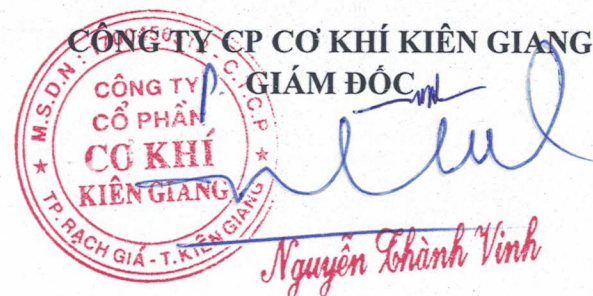 CÔNG TY CP CƠ KHÍ KIÊN GIANG
P. GIÁM ĐỐC
M.S.D.N: C.T.C.P
CÔNG TY
CỔ PHẦN
CƠ KHÍ
KIÊN GIANG
TP. RẠCH GIÁ - T. KIÊN GIANG
Nguyễn Thành Vinh